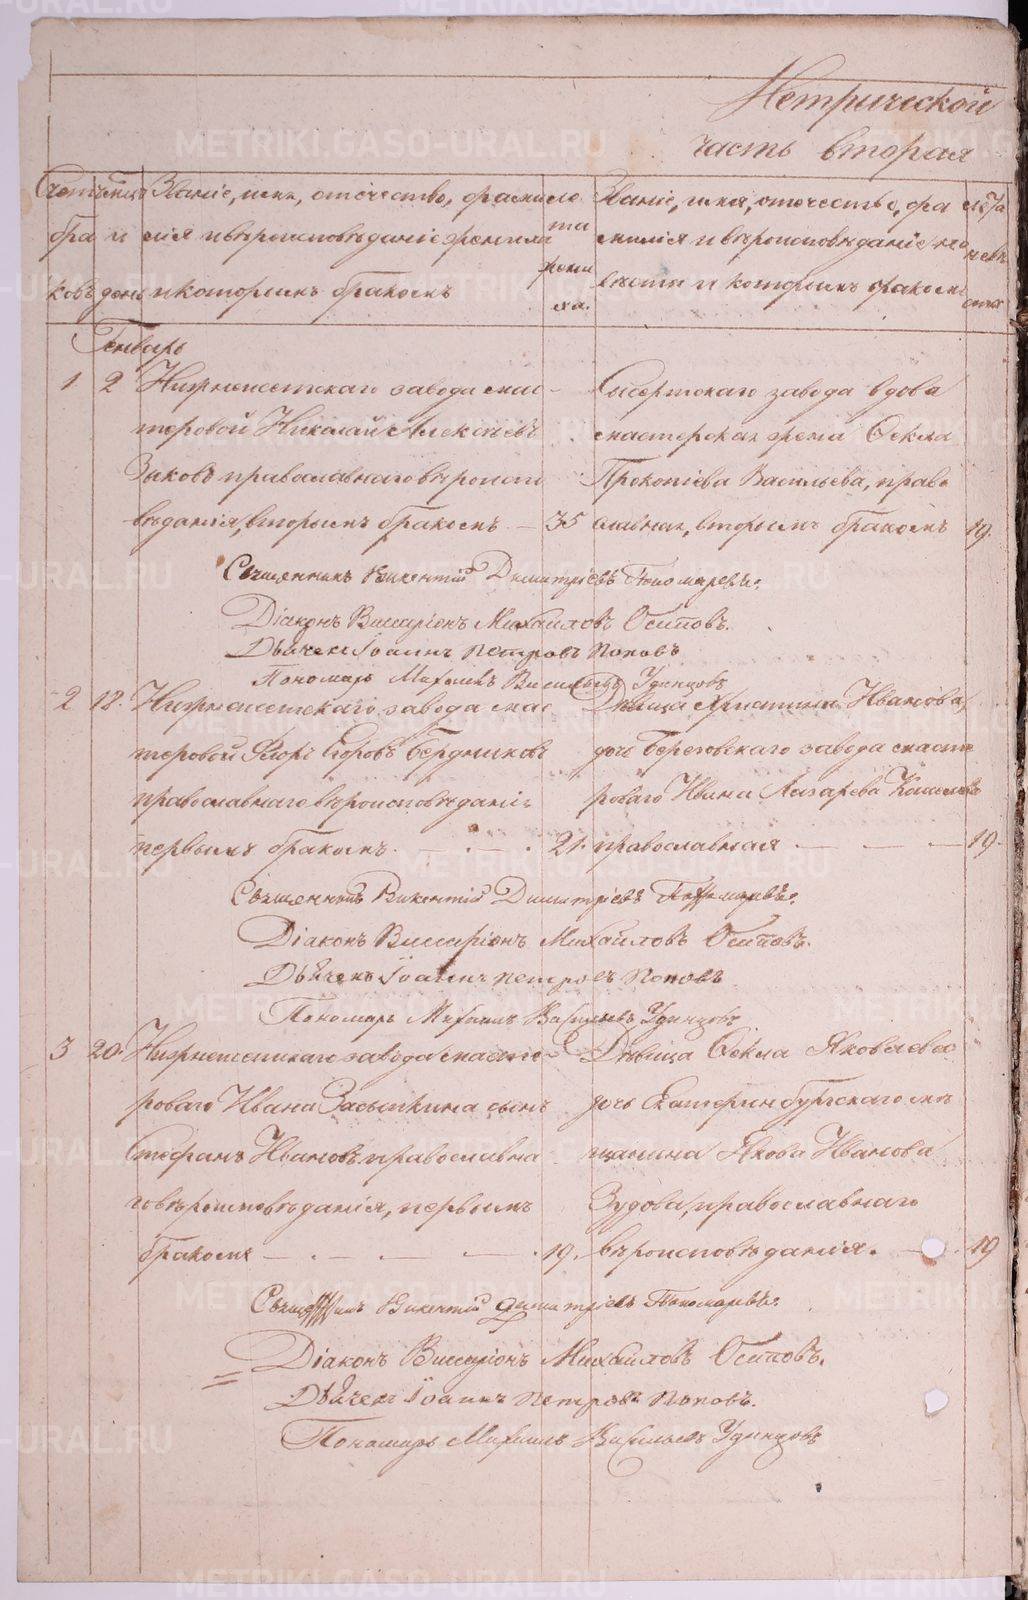 Метрической
часть вторая
Счетъ бра ковъ
и дни
Званіе, имя, отчество, фами
лія и вѣроисповѣданіе жениха
и которымъ бракомъ
ле
та
жени
ха.
Званіе, имя, отчество, фа
милія и вѣроисповѣданіе не
вѣсты и которымъ бракомъ
лѣта
невѣ
сты
Генварь
1 2 Нижнеисетскаго завода мас-
теровой Николай Алексѣевъ
Зыковъ православнаго вѣроиспо
вѣданія, вторымъ бракомъ — 35
Сысертскаго завода вдова
мастерская жена Ѳекла
Прокопіева Васильева, право
славная, вторымъ бракомъ 19.
Священникъ Викентій Димитріевъ Пономаревъ.
Діаконъ Виссаріонъ Михайловъ Осиповъ.
Дьячекъ Іоаннъ Петровъ Поповъ
Пономарь Михаилъ Васильевъ Удинцовъ
2 18. Нижнеисетскаго завода мас
теровой Флоръ Егоровъ Бердниковъ
православнаго вѣроисповѣданія
первымъ бракомъ. — . — . 21.
Дѣвица Христина Иванова,
дочь Березовскаго завода масте
роваго Ивана Лазарева
православная — — — 19.
Священникъ Викентій Димитріевъ Пономаревъ.
Діаконъ Виссаріонъ Михайловъ Осиповъ.
Дьячекъ Іоаннъ Петровъ Поповъ
Пономарь Михаилъ Васильевъ Удинцовъ
3 20. Нижнеисетскаго завода масте
роваго Ивана Засыпкина сынъ
Стефанъ Ивановъ православна
го вѣроисповѣданія, первымъ
бракомъ — . — . — . — . 19.
Дѣвица Ѳекла Яковлева
дочь Екатеринбургскаго мѣ
щанина Якова Иванова
Зудова, православнаго
вѣроисповѣданія. — . 19
Священникъ Викентій Димитріевъ Пономаревъ.
Діаконъ Виссаріонъ Михайловъ Осиповъ.
Дьячекъ Іоаннъ Петровъ Поповъ.
Пономарь Михаилъ Васильевъ Удинцовъ
METRIKI.GASO-URAL.RU